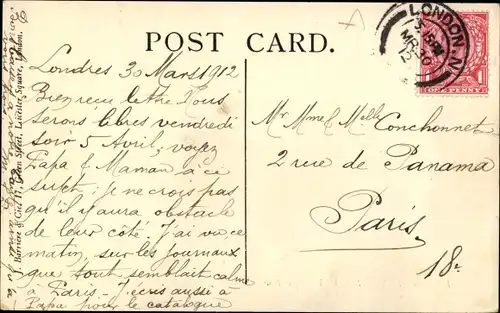 POST CARD.
LONDON. N
ONE PENNY
Londres 30 Mars 1912
Bien reçu lettre. Nous
serons libres vendredi
soir 5 Avril; voyez
Papa & Maman à ce
sujet; je ne crois pas
qu'il y aura obstacle
de leur côté. J'ai vu ce
matin, sur les journaux
que tout semblait calme
à Paris. J'écris aussi à
Papa pour le catalogue
Mr Mme & Melle Conchonnet
2 rue de Panama
Paris
18e
J. Barrière & Cie, 17, Green Street, Leicester Square, London.